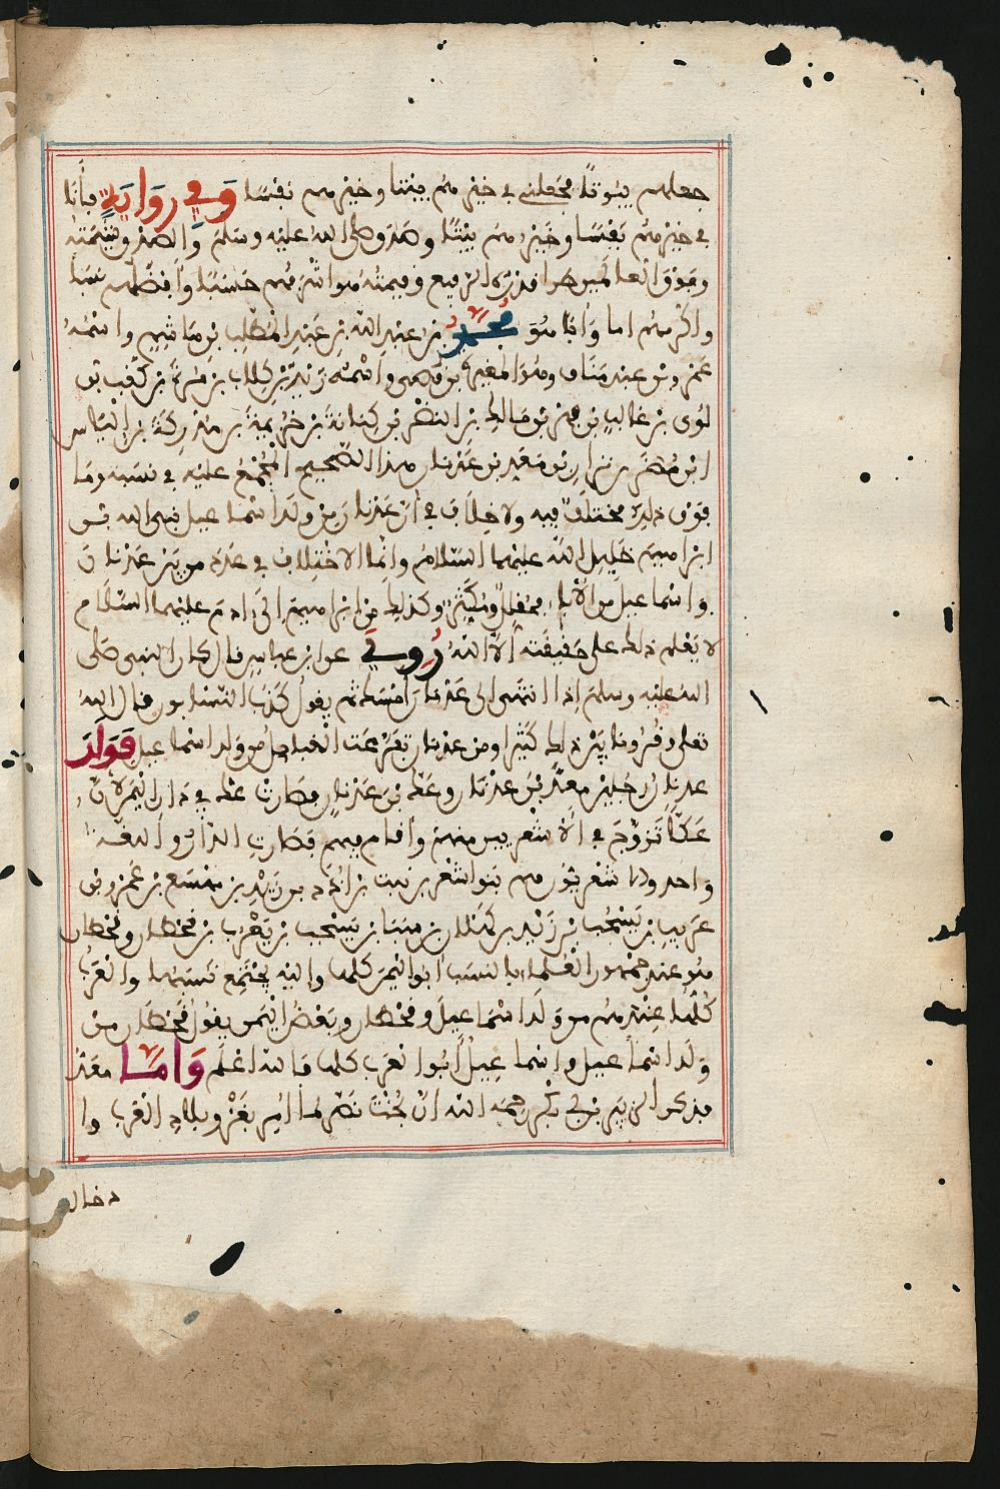 جعلهم بيوتا فجعلني في خيرهم بيتا وخيرهم نفسا وفي رواية فأنا
في خيرهم نفسا وخيرهم بيتا وصدق صلى الله عليه وسلم والصدق شيمته
وفوق العالمين طرا قدره الرفيع وقيمته هو اشرفهم حسبا وافضلهم نسبا
واكرمهم اما وابا هو محمد بن عبد الله بن عبد المطلب بن هاشم واسمه
عمرو بن عبد مناف وهو المغيرة بن قصي واسمه زيد بن كلاب بن مرة بن كعب بن
لؤي بن غالب بن فهر بن مالك بن النضر بن كنانة بن خزيمة بن مدركة بن إلياس
ابن مضر بن نزار بن معد بن عدنان هذا الصحيح المجمع عليه في نسبه وما
فوق ذلك مختلف فيه ولا خلاف في أن عدنان من ولد اسماعيل نبي الله بن
ابراهيم خليل الله عليهما السلام وانما الاختلاف في عدد من بين عدنان
واسماعيل من الآباء فمقلل ومكثر وكذلك من ابراهيم الى آدم عليهما السلام
لا يعلم ذلك على حقيقته الا الله روي عن ابن عباس قال كان النبي صلى
الله عليه وسلم إذا انتهى الى عدنان امسك ثم يقول كذب النسابون قال الله
تعلى وقرونا بين ذلك كثيرا ومن عدنان تفرعت القبائل من ولد اسماعيل فولد
عدنان رجلين معد بن عدنان وعك بن عدنان فصارت عك في دار اليمن لأن
عكا تزوج في الاشعريين منهم وأقام فيهم فصارت الدار واللغة
واحدة والاشعريون هم بنو اشعر بن نبت بن ادد بن زيد بن هميسع بن عمرو بن
عريب بن يشجب بن زيد بن كهلان بن سبا بن يشجب بن يعرب بن قحطان وقحطان
هو عند جمهور العلماء بالنسب ابو اليمن كلها واليه يجتمع نسبها والعرب
كلها عندهم من ولد اسماعيل وقحطان وبعض اليمن يقول قحطان من
ولد اسماعيل واسماعيل أبو العرب كلها فالله اعلم واما معد
فذكر الزبير بن أبي بكر رحمه الله ان بخت نصر لما امر بغزو بلاد العرب وا
دخال